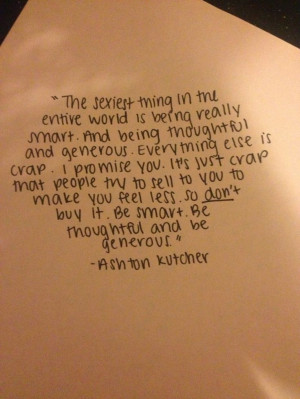 "The sexiest thing in the
entire world is being really
smart. And being thoughtful
and generous. Everything else is
crap. I promise you. It's just crap
that people try to sell to you to
make you feel less. So don't
buy it. Be smart. Be
thoughtful and be
generous."
-Ashton Kutcher